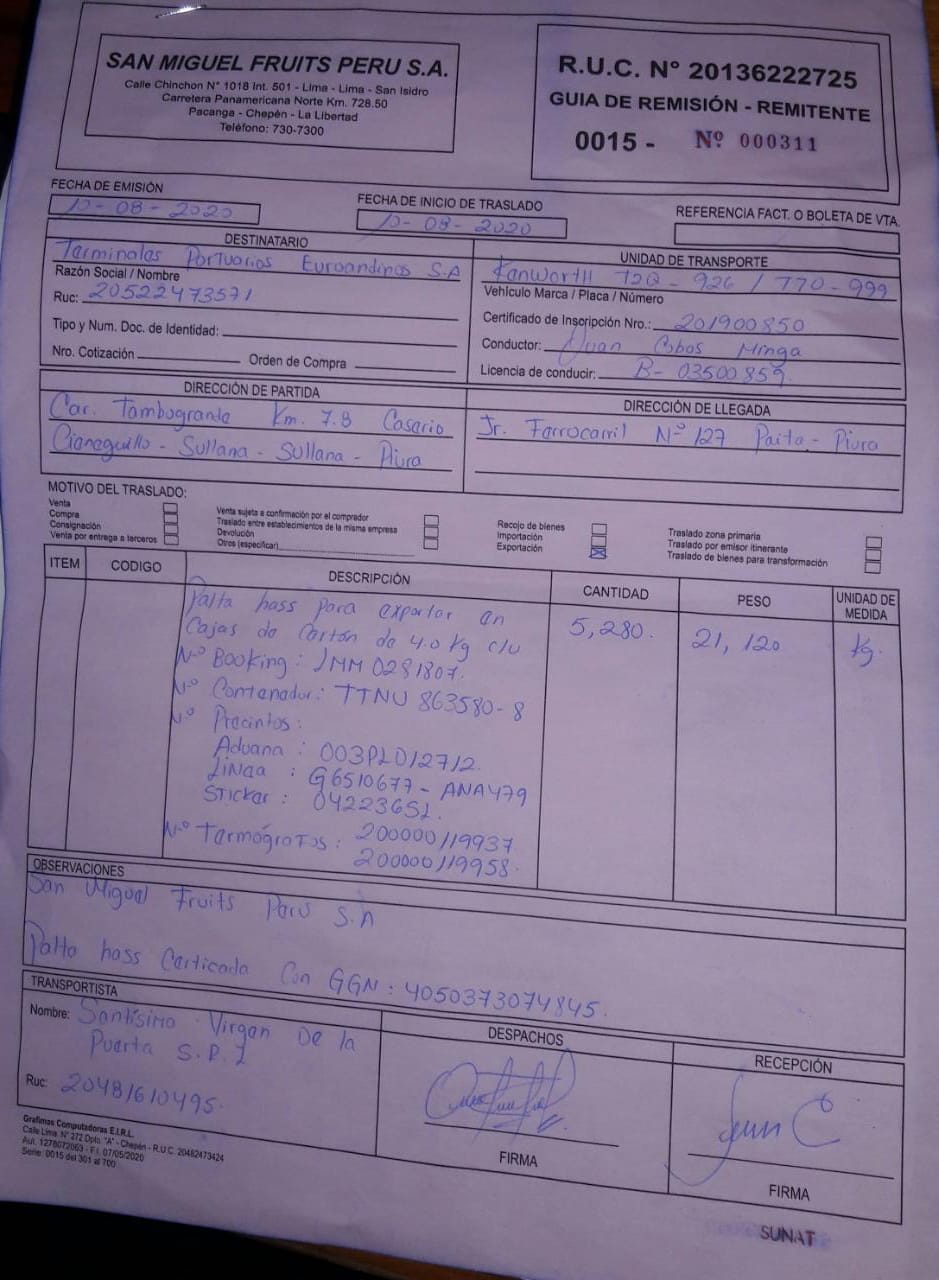 SAN MIGUEL FRUITS PERU S.A.
Calle Chinchon N° 1018 Int. 501 - Lima - Lima - San Isidro
Carretera Panamericana Norte Km. 728.50
Pacanga - Chepén - La Libertad
Teléfono: 730-7300
R.U.C. N° 20136222725
GUIA DE REMISIÓN - REMITENTE
0015 - Nº 000311
FECHA DE EMISIÓN
10-08-2020
FECHA DE INICIO DE TRASLADO
10-08-2020
REFERENCIA FACT. O BOLETA DE VTA.
DESTINATARIO
Terminales Portuarios Euroandinos S.A
Razón Social / Nombre
Ruc: 20522473571
Tipo y Num. Doc. de Identidad:
Nro. Cotización Orden de Compra
UNIDAD DE TRANSPORTE
Kenworth T2Q-926 / 770-999
Vehículo Marca / Placa / Número
Certificado de Inscripción Nro.: 201900850
Conductor: Juan Cobos Minga
Licencia de conducir: B-03500859
DIRECCIÓN DE PARTIDA
Car. Tambogrande Km. 7.8 Caserio
Cieneguillo - Sullana - Sullana - Piura
DIRECCIÓN DE LLEGADA
Jr. Ferrocarril Nº 127 Paita - Piura
MOTIVO DEL TRASLADO:
Venta
Compra
Consignación
Venta por entrega a terceros
Venta sujeta a confirmación por el comprador
Traslado entre establecimientos de la misma empresa
Devolución
Otros (especificar)
Recojo de bienes
Importación
Exportación
Traslado zona primaria
Traslado por emisor itinerante
Traslado de bienes para transformación
ITEM CODIGO DESCRIPCIÓN CANTIDAD PESO UNIDAD DE MEDIDA
Palta hass para exportar en 5,280. 21,120 Kg.
Cajas de Cartón de 4.0 Kg c/u
Nº Booking: JMM0281807.
Nº Contenedor: TTNU 863580-8
Nº Precintos:
Aduana : 003PLD12712.
Linea : G6510677 - ANA479
Sticker : 04223651.
Nº Termógrafos: 200000119937
200000119958.
OBSERVACIONES
San Miguel Fruits Perú S.A
Palta hass Certicada Con GGN: 4050373074845.
TRANSPORTISTA
Nombre: Santísima Virgen De la
Puerta S.R.L
Ruc: 20481610495.
DESPACHOS
FIRMA
RECEPCIÓN
FIRMA
Grafimas Computadoras E.I.R.L.
Calle Lima N° 272 Dpto. "A" - Chepén - R.U.C. 20482473424
Aut. 1278072063 - F.I. 07/05/2020
Serie: 0015 del 301 al 700
SUNAT